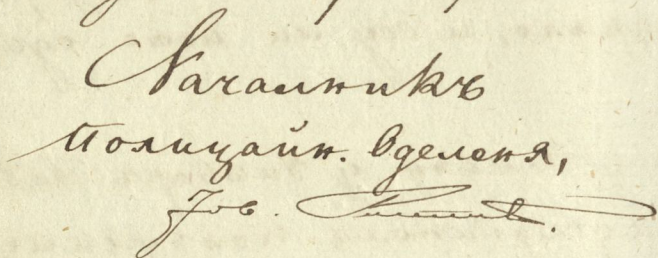 Началникъ
Полицайн. Оделеня,
Јов.